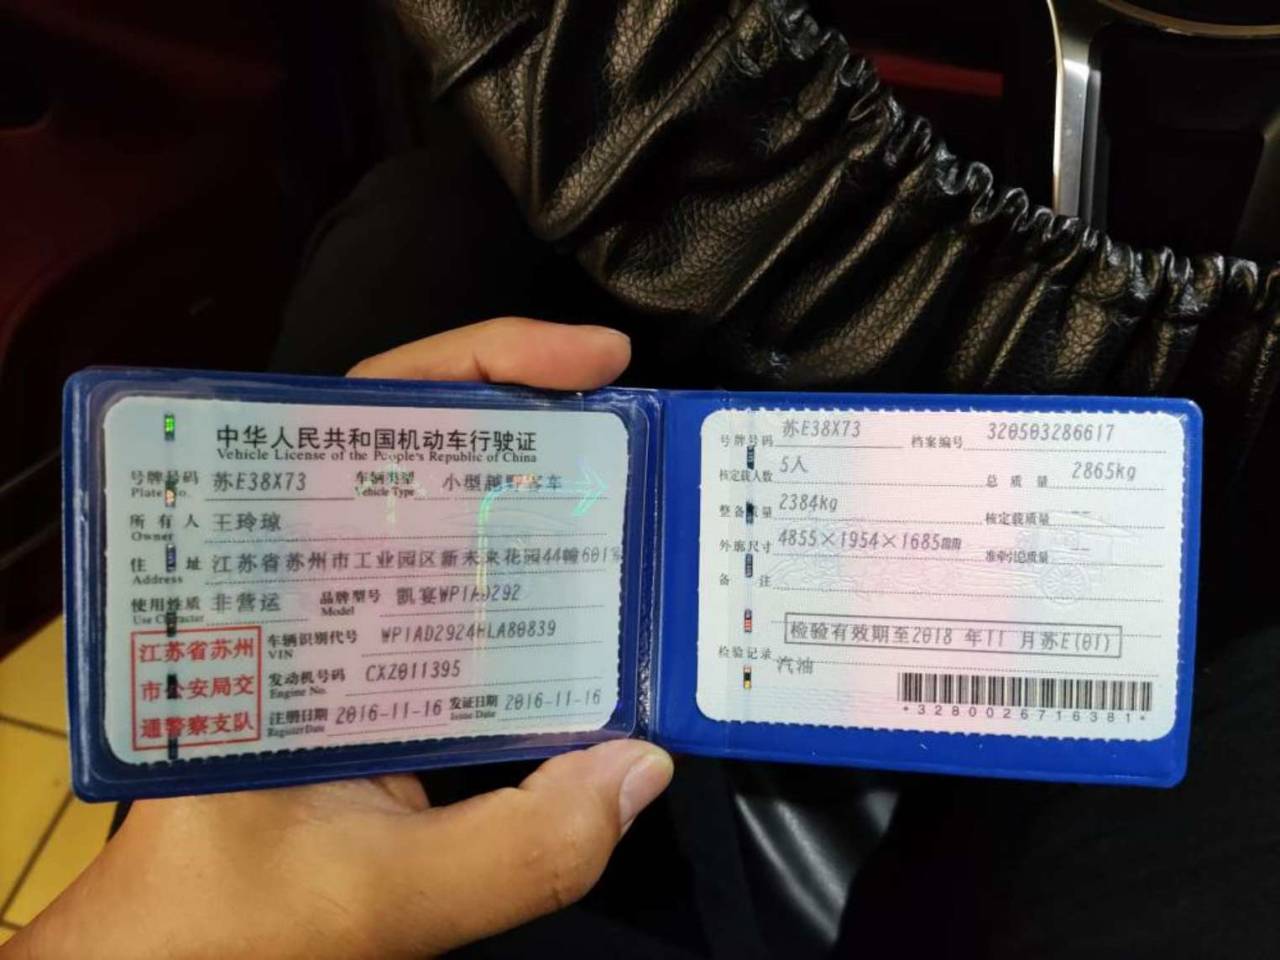 中华人民共和国机动车行驶证
Vehicle License of the People's Republic of China
号牌号码 苏E38X73 车辆类型 小型越野客车
Plate No. Vehicle Type
所有人 王玲琼
Owner
住址 江苏省苏州市工业园区新未来花园44幢601室
Address
使用性质 非营运 品牌型号 凯宴WP1AD292
Use Character Model
江苏省苏州
市公安局交
通警察支队
车辆识别代号 WP1AD2924HLA80839
VIN
发动机号码 CXZ011395
Engine No.
注册日期 2016-11-16 发证日期 2016-11-16
Register Date Issue Date
号牌号码 苏E38X73 档案编号 320503286617
核定载人数 5人 总质量 2865kg
整备质量 2384kg 核定载质量 --
外廓尺寸 4855×1954×1685mm 准牵引总质量 --
备注
检验有效期至2018 年11 月苏E(01)
检验记录
汽油
*3280026716381*